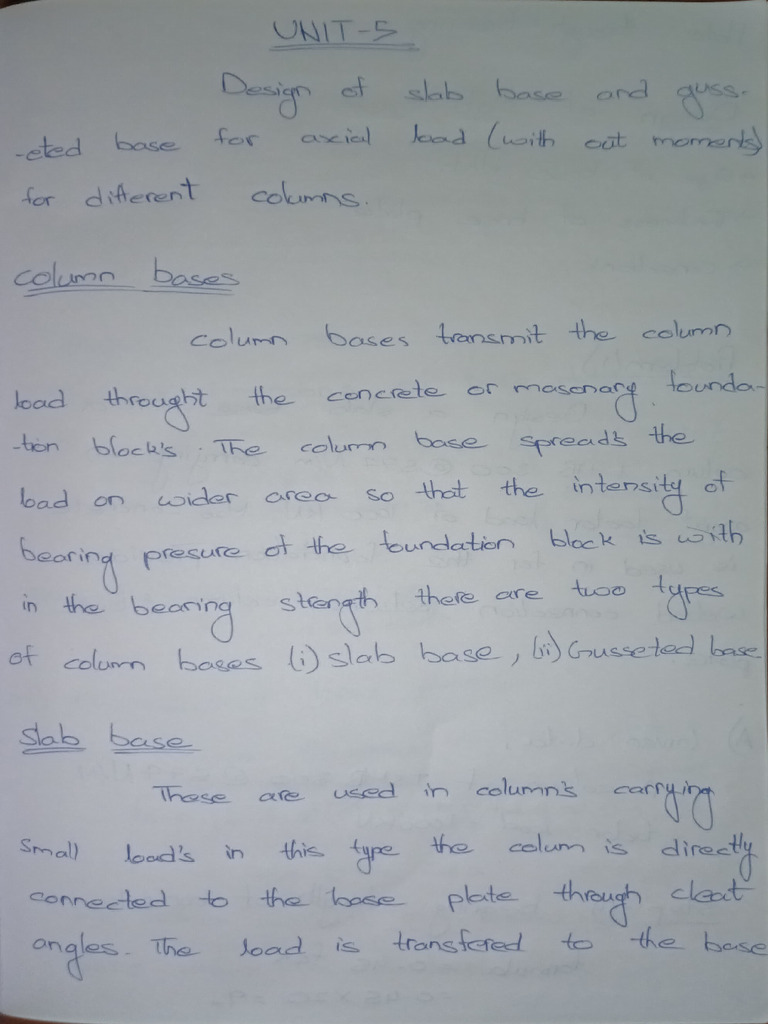 UNIT-5
Design of slab base and guss-
-eted base for axial load (with out moments)
for different columns.
column bases
column bases transmit the column
load throught the concrete or masonary founda-
-tion block's. The column base spread's the
load on wider area so that the intensity of
bearing presure of the foundation block is with
in the bearing strength there are two types
of column bases (i) slab base, (ii) Gusseted base
Slab base
These are used in column's carrying
small load's in this type the colum is directly
connected to the base plate through cleat
angles. The load is transfered to the base